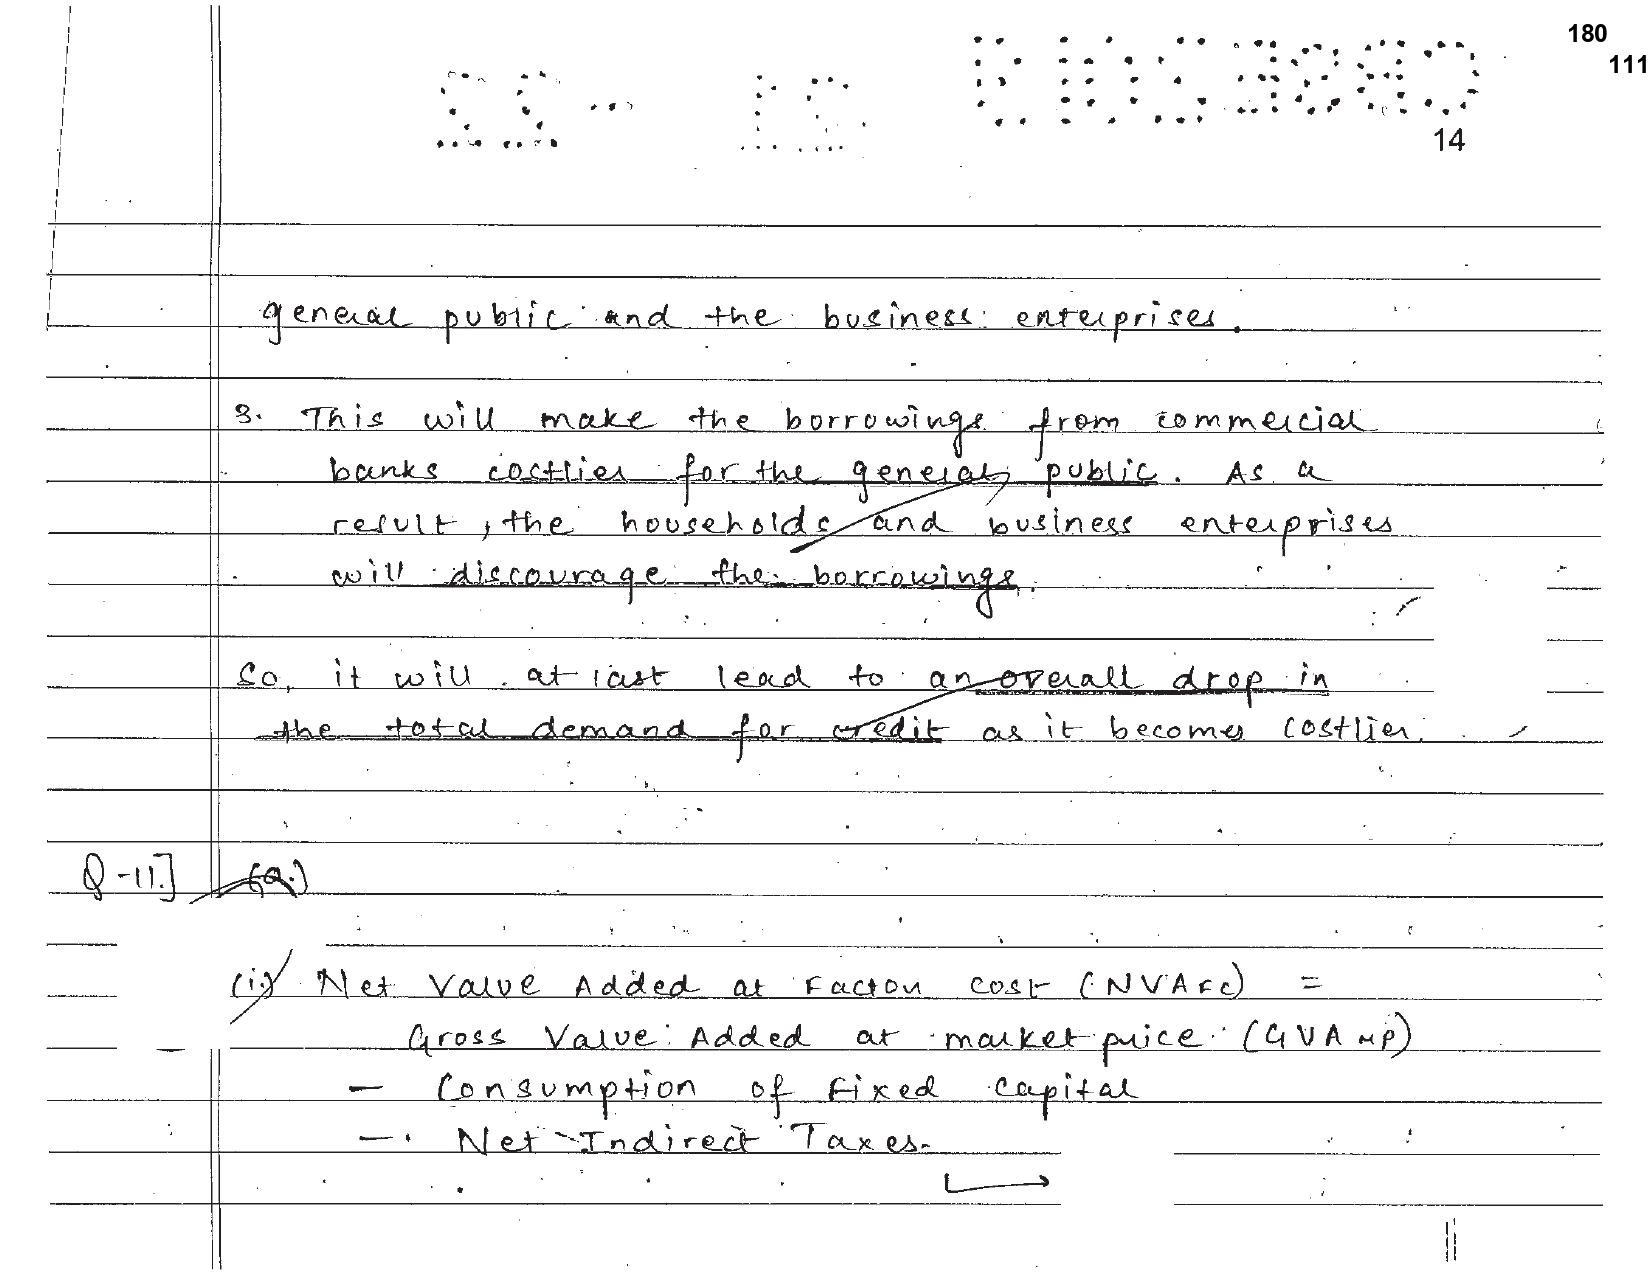 180
111
CBSE 2019
21 - 22
14
general public and the business enterprises.
3. This will make the borrowings from commercial
banks costlier for the general public. As a
result, the households and business enterprises
will discourage the borrowings.
So, it will at last lead to an overall drop in
the total demand for credit as it becomes costlier.
Q-11.] (a.)
(i.) Net Value Added at Factor cost (NVAFC) =
Gross Value Added at market price (GVAMP)
- Consumption of Fixed Capital
- Net Indirect Taxes.